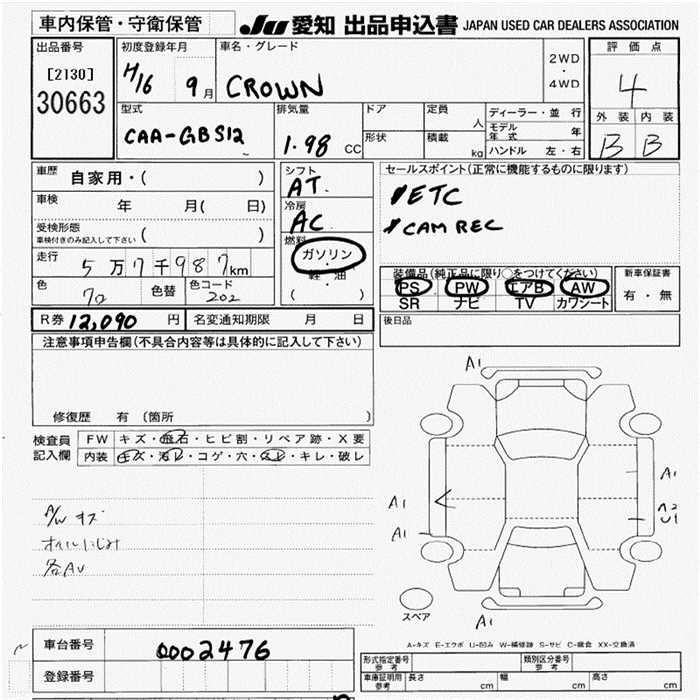 車内保管・守衛保管 JU 愛知 出品申込書 JAPAN USED CAR DEALERS ASSOCIATION
出品番号 初度登録年月 車名・グレード 2WD ・ 4WD 評価点
[2130] H16 9月 CROWN 4
30663
型式 排気量 ドア 定員 人 ディーラー・並行 外装 内装
CAA-GBS12 1.98 CC 形状 積載 kg モデル年式 年 B B
ハンドル 左・右
車歴 自家用・( ) シフト セールスポイント(正常に機能するものに限ります)
AT.
車検 年 月( 日) 冷房 ETC
AC CAM REC
受検形態 ( )
車検付きのみ記入して下さい
燃料
走行 5万7千987km ガソリン・軽油 装備品(純正品に限り○をつけてください) 新車保証書
( ) PS PW エアB AW 有・無
色 色替 色コード SR ナビ TV カワシート
202
R券 12,090 円 名変通知期限 月 日 後日品
注意事項申告欄(不具合内容等は具体的に記入して下さい)
修復歴 有 (箇所 )
検査員記入欄 FW キズ・飛石・ヒビ割・リペア跡・X要
内装 キズ・汚レ・コゲ・穴・スレ・キレ・破レ
A1
A1
A1
A1
A2
U1
A/W キズ
オイルにじみ
各AU
スペア
A1
A-キズ E-エクボ U-凹み W-補修跡 S-サビ C-腐食 XX-交換済
車台番号 0002476
登録番号
形式指定番号 参考 類別区分番号 参考
車庫証明用 参考 長さ cm 幅 cm 高さ cm